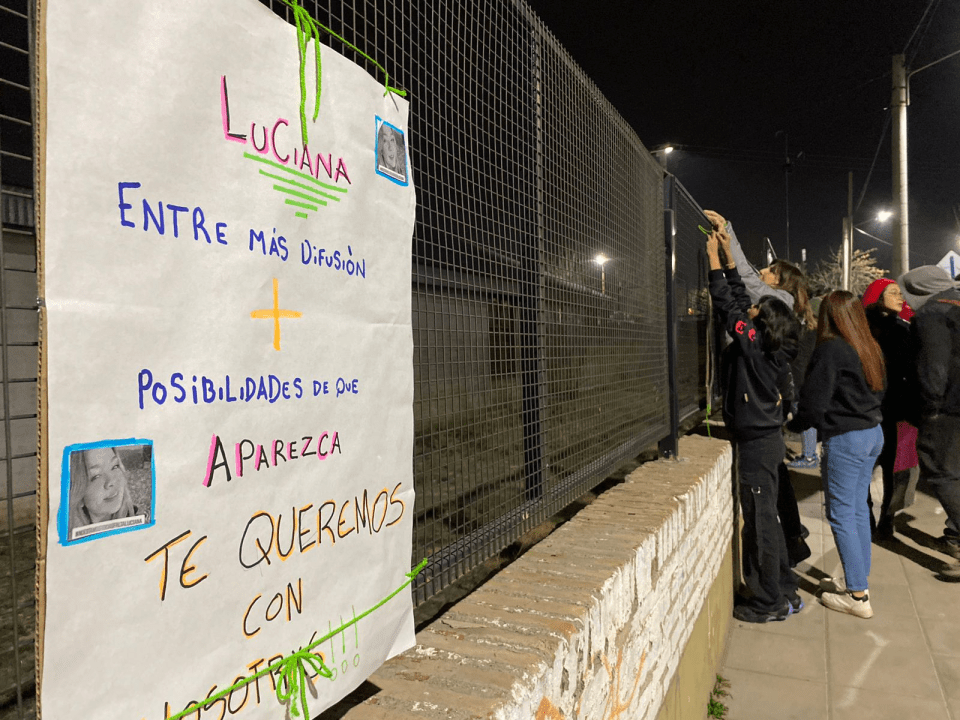 LUCIANA
ENTRE MÁS DIFUSIÒN
+
POSIBILIDADES DE QUE
APAREZCA
TE QUEREMOS
CON
!!!